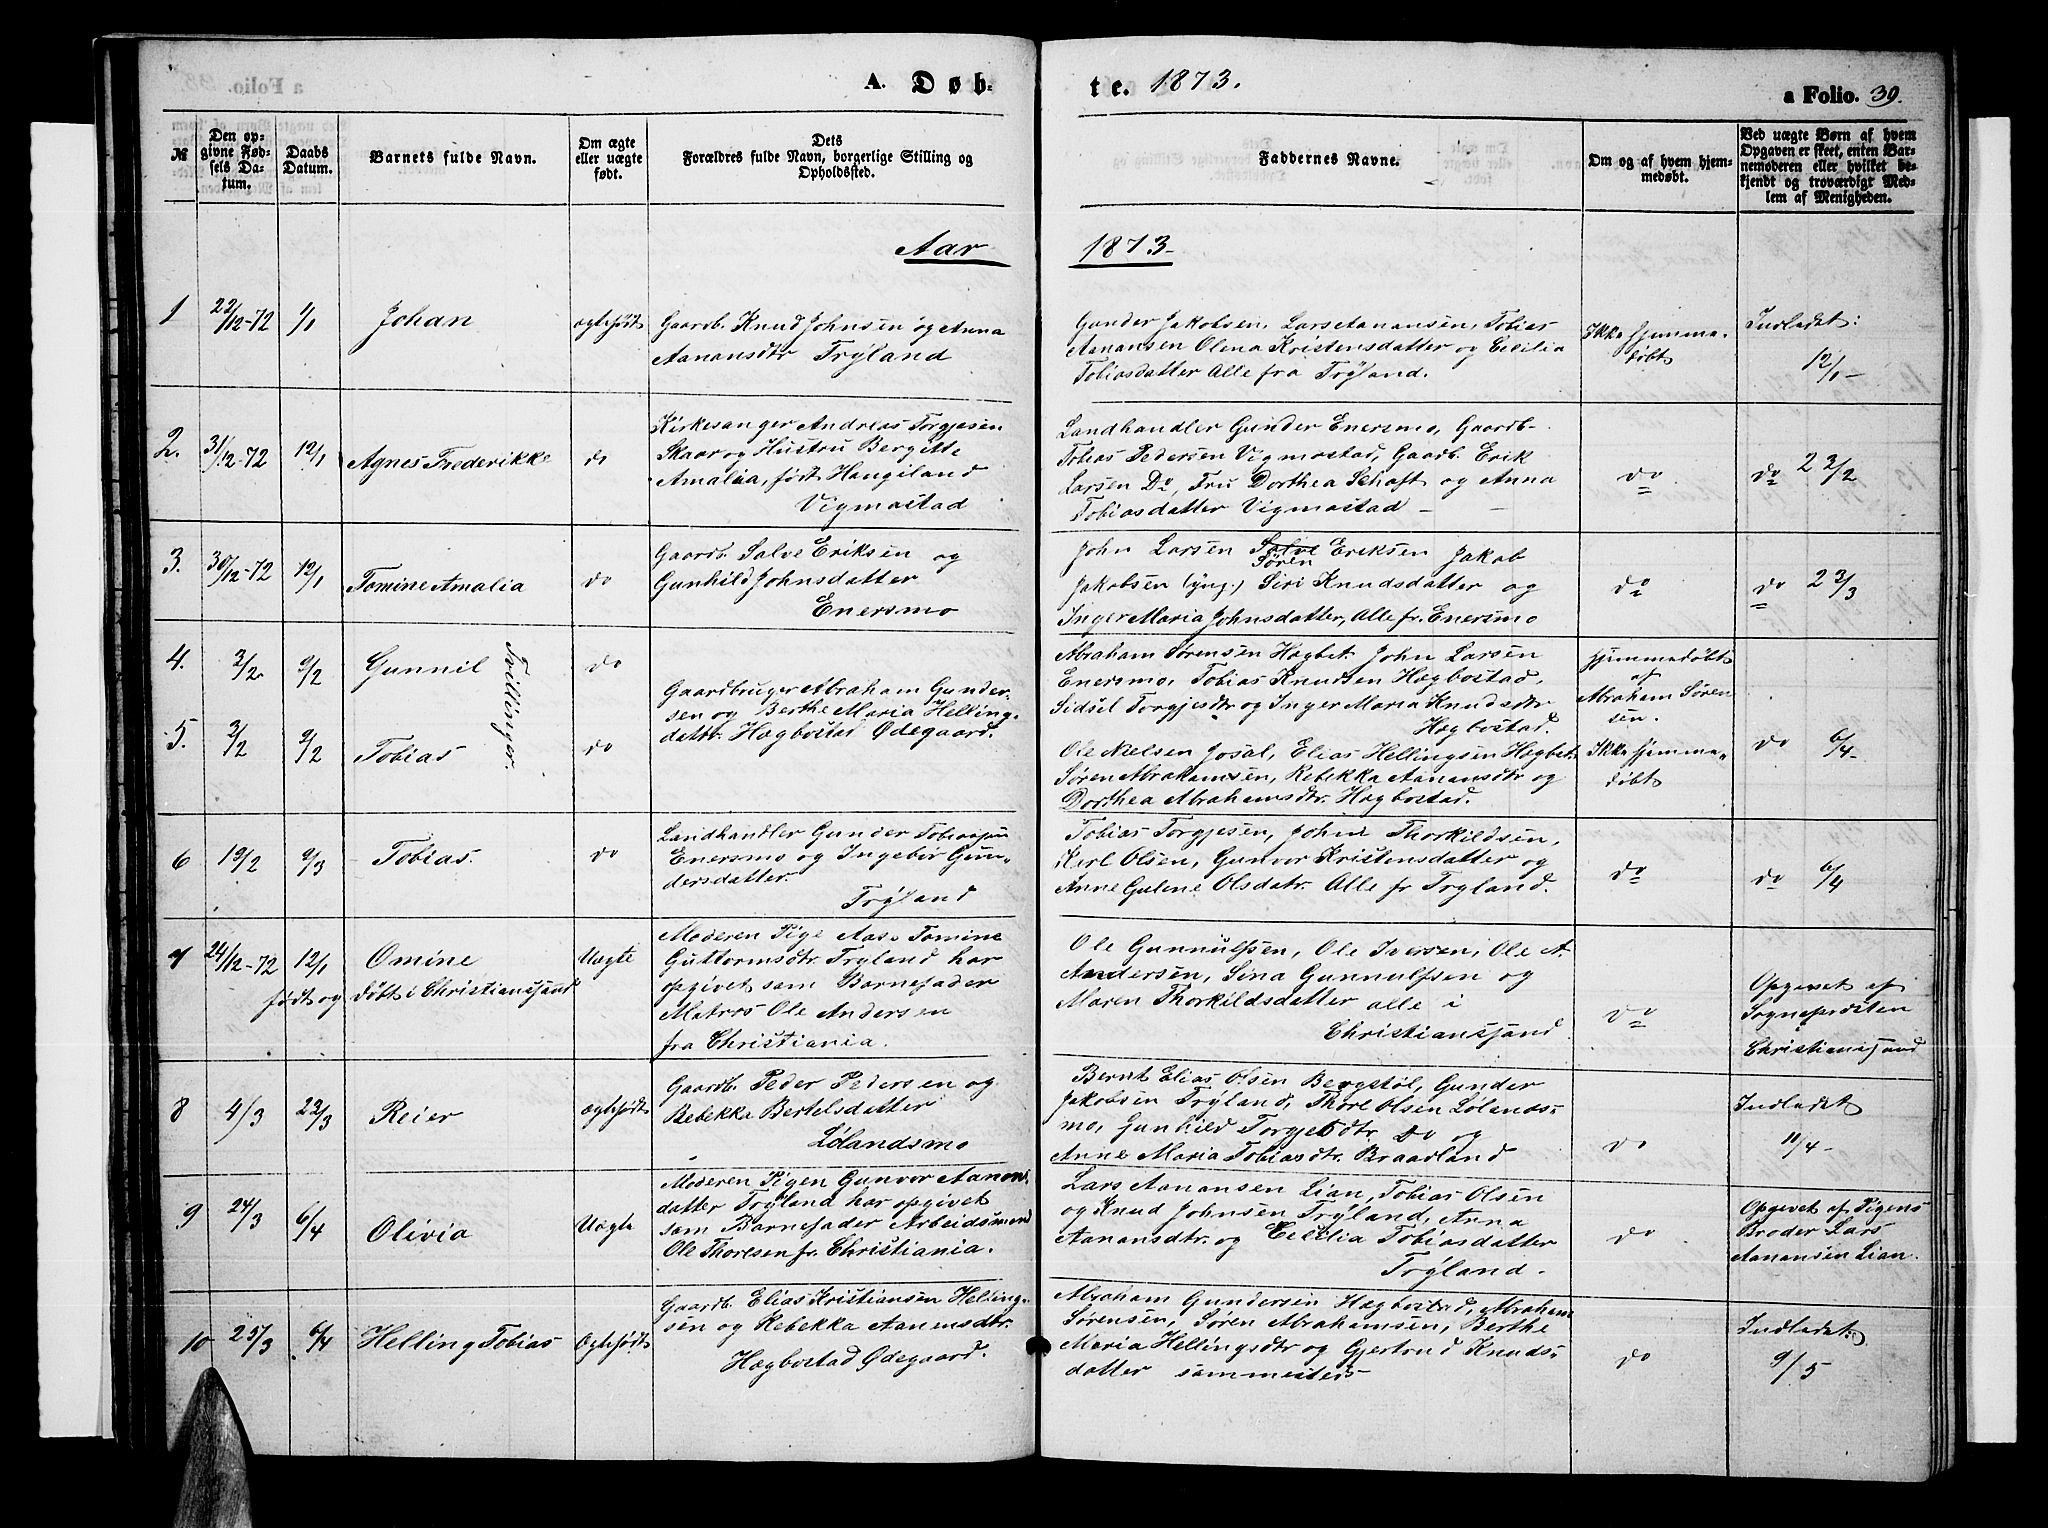 A. Døb-
te. 1873.
a Folio. 39.
№
Den op-
givne Fød-
sels Da-
tum.
Daabs
Datum.
Barnets fulde Navn.
Om ægte
eller uægte
født.
Dets
Forældres fulde Navn, borgerlige Stilling og
Opholdssted.
Faddernes Navne.
Om og af hvem hjem-
medøbt.
Ved uægte Børn af hvem
Opgaven er skeet, enten Bar-
nemoderen eller hvilket be-
kjendt og troværdigt Med-
lem af Menigheden.
Aar 1873-
1
22/12-72
1/1
Johan
ægtefødt
Gaardb. Knud Johnsen og Anna
Aanansdtr Trÿland
Gunder Jakobsen, Lars Aanansen, Tobias
Aanansen Olena Kristensdatter og Cecilia
Tobiasdatter Alle fra Trÿland.
Ikke hjemme-
døbt
Indledet:
12/1-
2.
31/12-72
12/1
Agnes Frederikke
do
Kirkesanger Andreas Torgjesen
Skaar og Hustru Bergitte
Amalia, født Haugiland
Vigmostad
Landhandler Gunder Enersmo, Gaardb.
Tobias Pedersen Vigmostad, Gaardb. Erik
Larsen Do, Fru Dorthea Schaft og Anna
Tobiasdatter Vigmostad -
do
do 2 3/2
3.
30/12-72
12/1
Tomine Amalia
do
Gaardb. Salve Eriksen og
Gunhild Johnsdatter
Enersmo
John Larsen Salve Eriksen Jakob
Søren
Jakobsen (yng.) Siri Knudsdatter og
Inger Maria Johnsdatter, Alle fr. Enersmo
do
do 2 3/3
4.
3/2
9/2
Gunnil
Tvillinger.
do
Gaardbruger Abraham Gunder-
sen og Berthe Maria Helling-
dattr. Hægbostad Ødegaard.
Abraham Sørensen Hægbst. John Larsen
Enersmo, Tobias Knudsen Hægbostad,
Sidsel Torgjesdtr og Inger Maria Knudsdtr
Hægbostad.
Hjemmedøbt
af
Abraham Søren
sen.
5.
3/2
9/2
Tobias
do
Ole Nielsen Josal, Elias Hellingsen Hægbst.
Søren Abrahamsen, Rebekka Aanansdtr og
Dorthea Abrahamsdtr. Hægbostad.
Ikke hjemme-
døbt
do 6/4-
6
19/2
9/3
Tobias.
do
Landhandler Gunder Tobiassen
Enersmo og Ingebor Gun-
dersdatter.
Trÿland
Tobias Torgjesen, John Thorkildsen,
Karl Olsen, Gunvor Kristensdatter og
Anne Gulene Olsdatr. Alle fr Tryland.
do
do 6/4
7
24/12-72
12/1
Omine
født og døbt i Christianssand
Uægte
Moderen Pige Aase Tomine
Guttormsdtr. Tryland har
opgivet som Barnefader
Matros Ole Andersen
fra Christiania.
Ole Gunnulfsen, Ole Iversen, Ole A.
Andersen, Sina Gunnulfsen og
Maren Thorkildsdatter alle i
Christianssand
do
Opgivet af
Sognepresten
Christianssand
8
4/3
23/3
Reier
ægtefødt
Gaardb. Peder Pedersen og
Rebekka Bertelsdatter
Lølandsmo
Bernt Elias Olsen Bergstøl, Gunder
Jakobsen Trÿland, Thore Olsen Lølands-
mo, Gunhild Torgjesdtr. Do og
Anne Maria Tobiasdtr. Braadland
do
Indledet
11/4-
9
24/3
6/4
Olivia
Uægte
Moderen Pigen Gunvor Aanons
datter Trÿland har opgivet
som Barnefader Arbeidsmand
Ole Thoresen fr. Christiania.
Lars Aanansen Lian, Tobias Olsen
og Knud Johnsen Trÿland, Anna
Aanansdtr. og Cecilia Tobiasdatter
Trÿland.
do
Opgivet af Pigens
Broder Lars
Aanansen Lian.
10
25/3
6/4
Helling Tobias
Ægtefødt
Gaardb. Elias Kristiansen Helling-
sen og Rebekka Aanensdtr.
Hægbostad Ødegaard.
Abraham Gundersen Hægbostad, Abraham
Sørensen, Søren Abrahamsen, Berthe
Maria Hellingsdtr og Gjertrud Knuds-
datter sammesteds
do
Indledet:
9/5